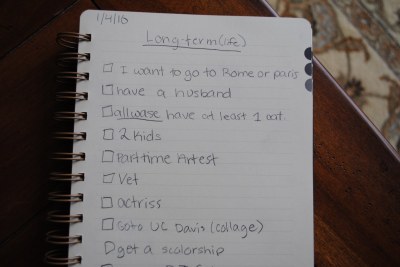 1/4/10
Long-term(life)
I want to go to Rome or paris
have a husband
allwase have at least 1 cat.
2 kids
Parttime Artest
Vet
actriss
Goto UC Davis (collage)
get a scolorship